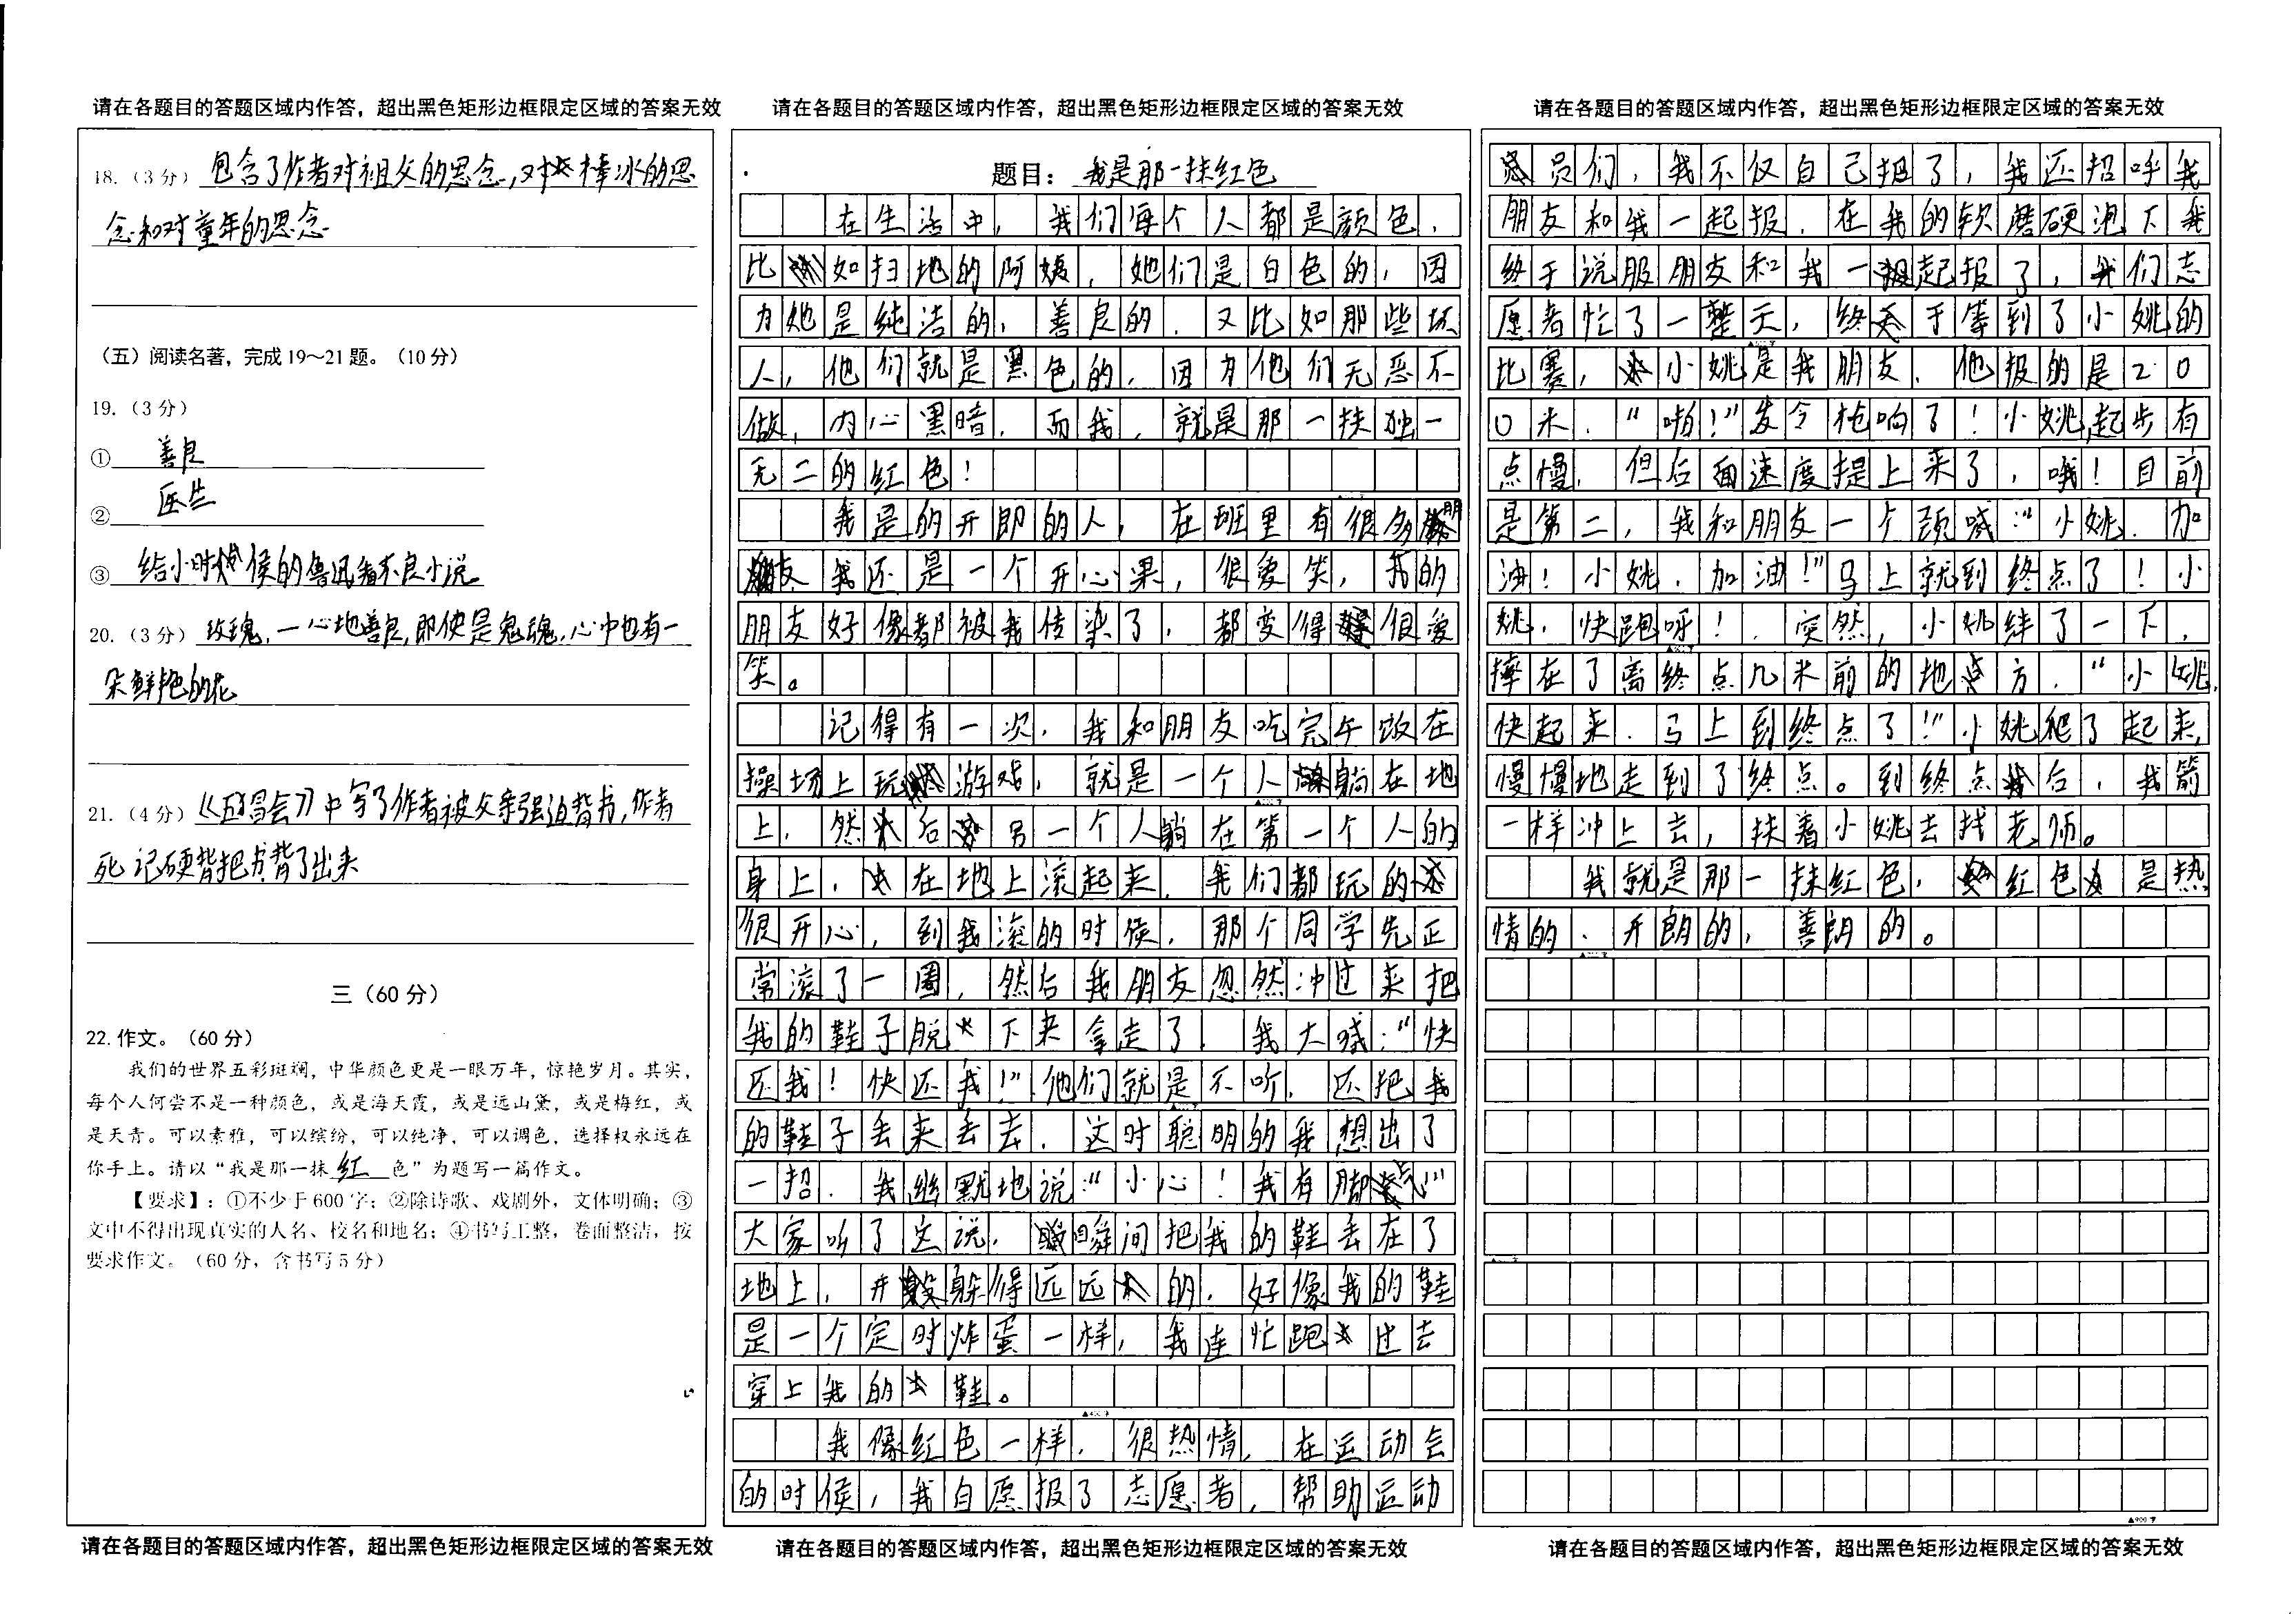 请在各题目的答题区域内作答，超出黑色矩形边框限定区域的答案无效
18.（3分）包含了作者对祖父的思念，对棒冰的思
念和对童年的思念
（五）阅读名著，完成19～21题。（10分）
19.（3分）
①善良
②医生
③给小时候的鲁迅看不良小说
20.（3分）玫瑰，一心地善良，即使是鬼魂，心中也有一
朵鲜艳的花
21.（4分）《五猖会》中写了作者被父亲强迫背书，作者
死记硬背把书背了出来
三（60分）
22.作文。（60分）
我们的世界五彩斑斓，中华颜色更是一眼万年，惊艳岁月。其实，
每个人何尝不是一种颜色，或是海天霞，或是远山黛，或是梅红，或
是天青。可以素雅，可以缤纷，可以纯净，可以调色，选择权永远在
你手上。请以“我是那一抹红色”为题写一篇作文。
【要求】：①不少于600字；②除诗歌、戏剧外，文体明确；③
文中不得出现真实的人名、校名和地名；④书写工整，卷面整洁，按
要求作文。（60分，含书写5分）
请在各题目的答题区域内作答，超出黑色矩形边框限定区域的答案无效
请在各题目的答题区域内作答，超出黑色矩形边框限定区域的答案无效
题目：我是那一抹红色
在生活中，我们每个人都是颜色，
比如扫地的阿姨，她们是白色的，因
为她是纯洁的，善良的，又比如那些坏
人，他们就是黑色的，因为他们无恶不
做，内心黑暗，而我，就是那一抹独一
无二的红色！
我是的开朗的人，在班里有很多朋
友，我还是一个开心果，很爱笑，我的
朋友好像都被我传染了，都变得很爱
笑。
记得有一次，我和朋友吃完午饭在
操场上玩游戏，就是一个人躺在地
上，然后另一个人躺在第一个人的
身上，在地上滚起来，我们都玩的
很开心，到我滚的时候，那个同学先正
常滚了一圈，然后我朋友忽然冲过来把
我的鞋子脱下来拿走了，我大喊：“快
还我！快还我！”他们就是不听，还把我
的鞋子丢来丢去，这时聪明的我想出了
一招，我幽默地说：“小心！我有脚气”
大家听了这说，瞬间把我的鞋丢在了
地上，并躲得远远的，好像我的鞋
是一个定时炸蛋一样，我连忙跑过去
穿上我的鞋。
我像红色一样，很热情，在运动会
的时候，我自愿报了志愿者，帮助运动
请在各题目的答题区域内作答，超出黑色矩形边框限定区域的答案无效
请在各题目的答题区域内作答，超出黑色矩形边框限定区域的答案无效
员们，我不仅自己报了，我还招呼我
朋友和我一起报，在我的软磨硬泡下我
终于说服朋友和我一起报了，我们志
愿者忙了一整天，终于等到了小姚的
比赛，小姚是我朋友，他报的是20
0米，“啪！”发令枪响了！小姚起步有
点慢，但后面速度提上来了，哦！目前
是第二，我和朋友一个劲喊：“小姚，加
油！小姚，加油！”马上就到终点了！小
姚，快跑呀！，突然，小姚绊了一下，
摔在了离终点几米前的地方，“小姚，
快起来，马上到终点了！”小姚爬了起来，
慢慢地走到了终点。到终点后，我箭
一样冲上去，扶着小姚去找老师。
我就是那一抹红色，红色是热
情的、开朗的，善朗的。
▲900字
请在各题目的答题区域内作答，超出黑色矩形边框限定区域的答案无效